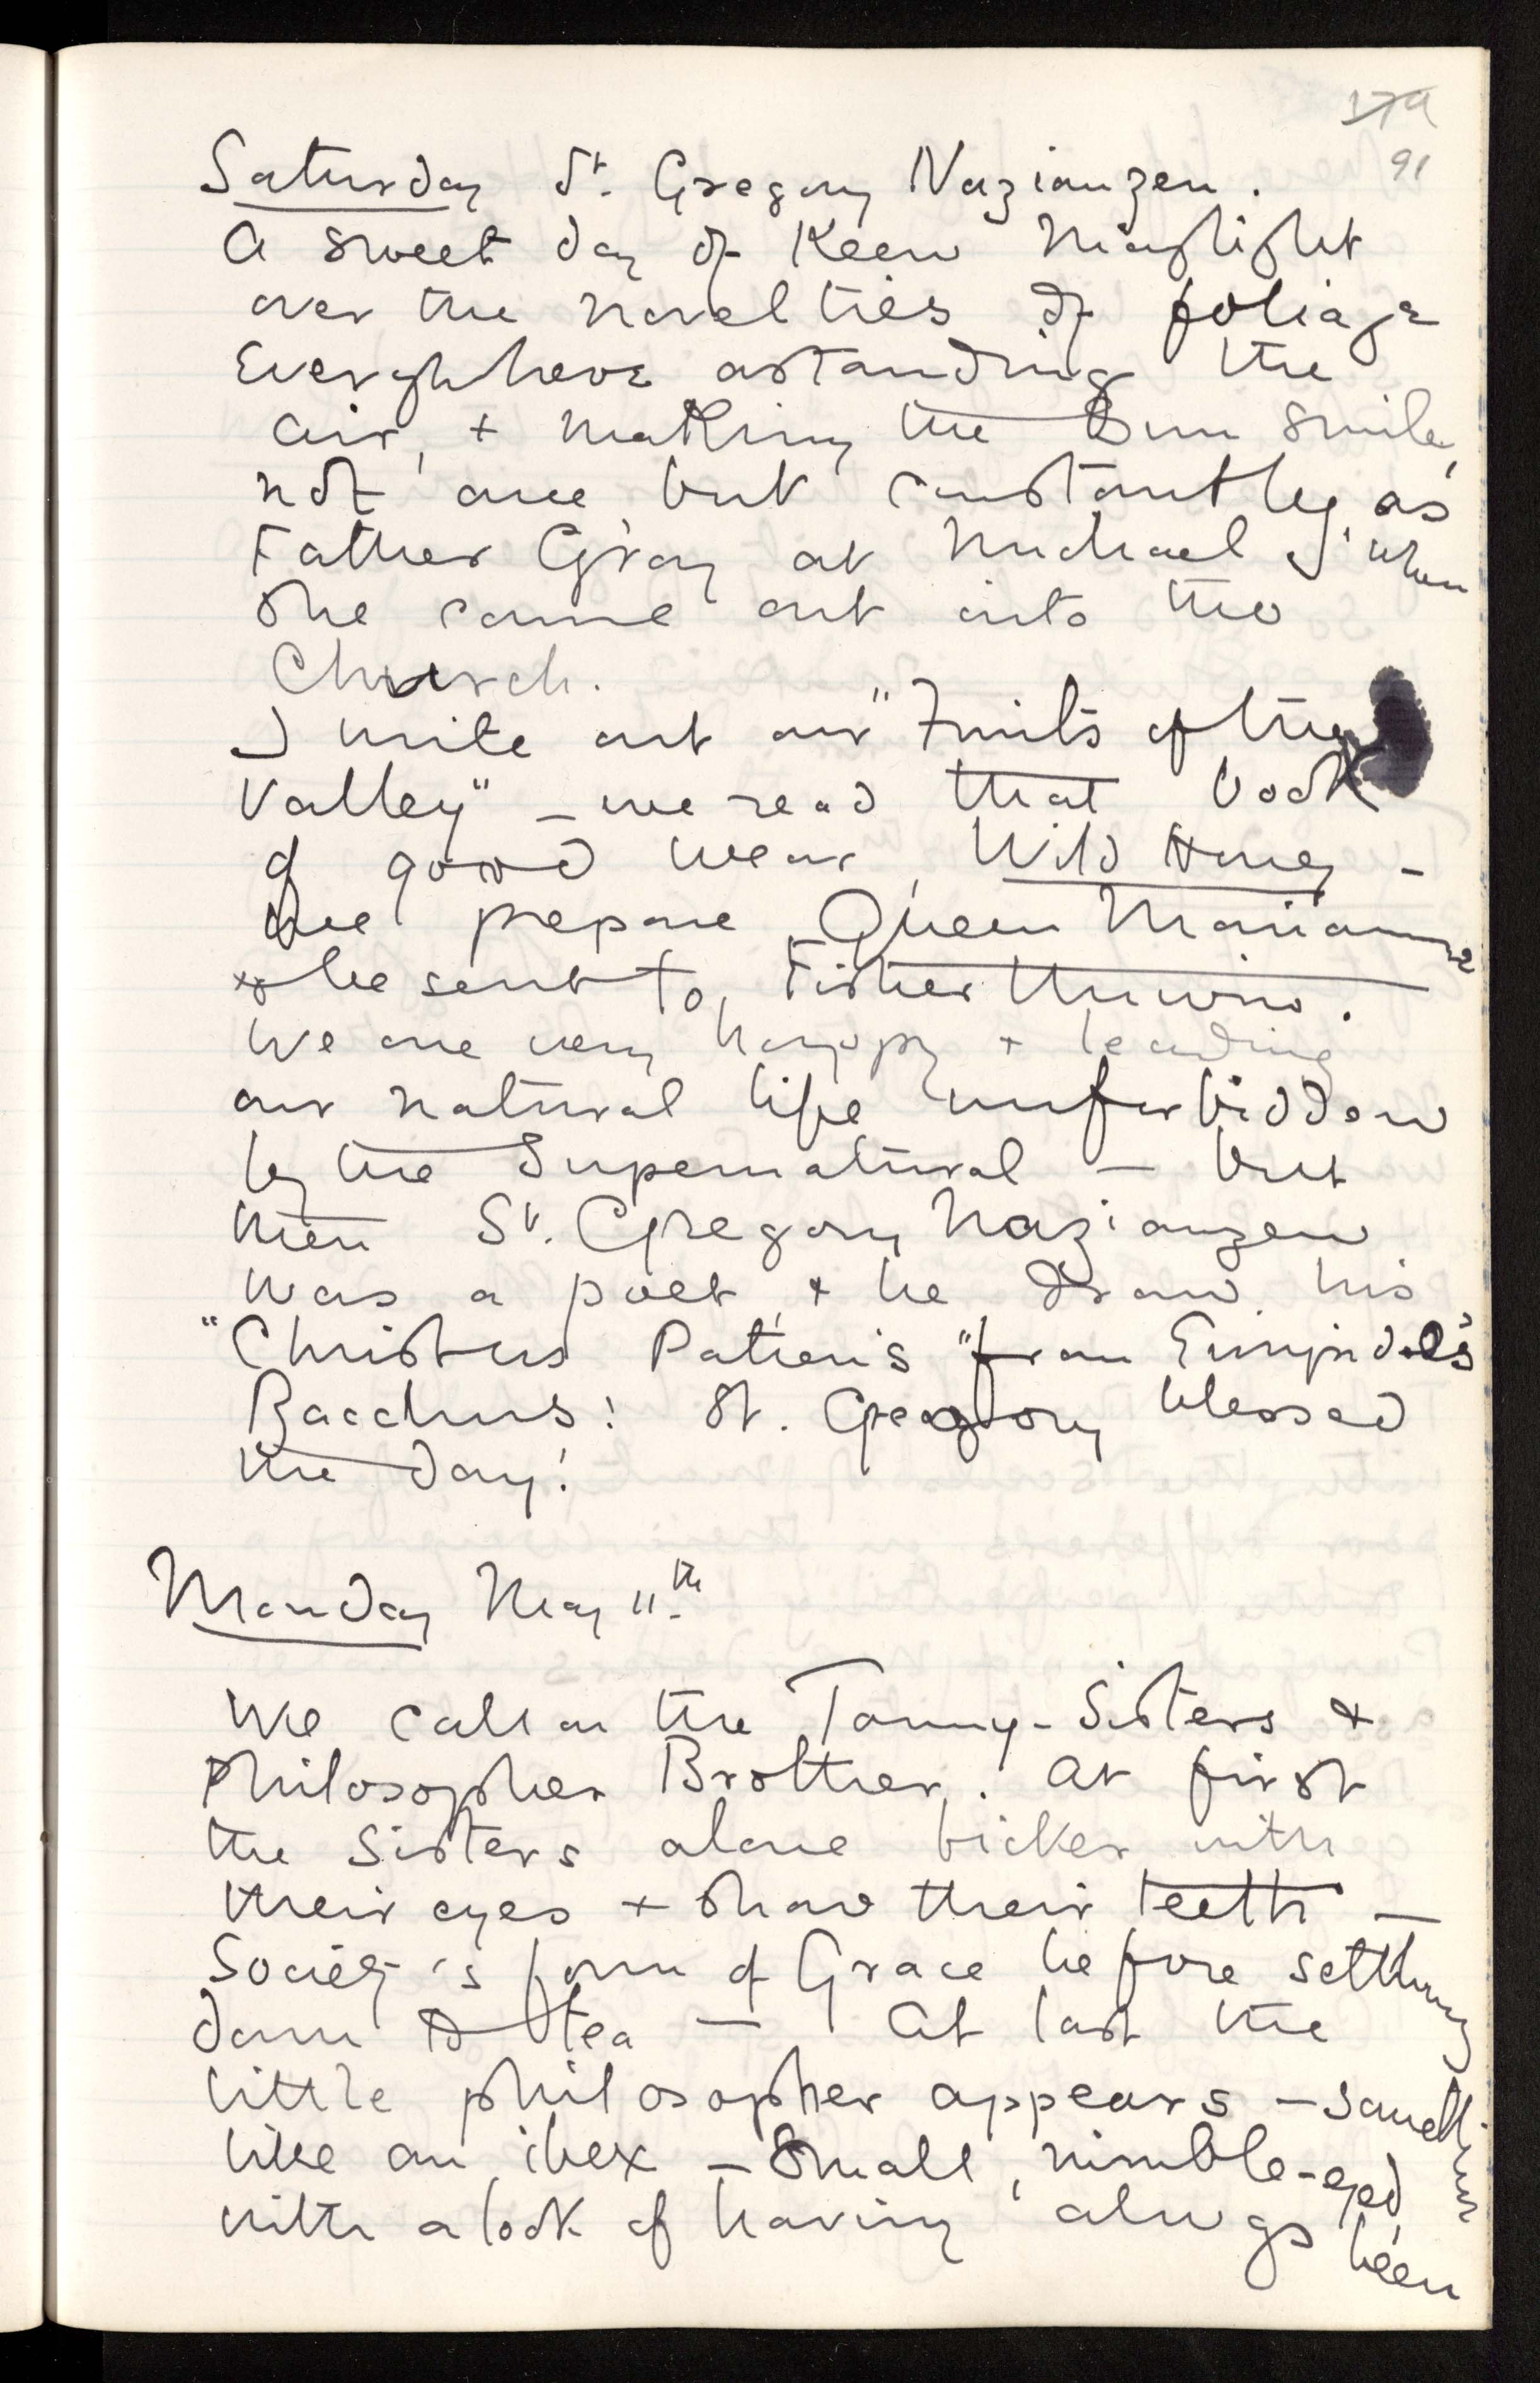 179
91
Saturday St. Gregory Nazianzen.
A sweet day of keen Maylight
over the novelties of foliage
Everywhere astounding the
air, + making the Sun smile,
not once but constantly, as
Father Gray at Michael when
she came out into the
Church.
I write out our "Fruits of the
Valley" – we read that book
of good wear, Wild Honey –
we prepare Queen Mariamne
to be sent to, Fisher Unwin.
We are very happy + leading
our natural life unforbidden
by the Supernatural – but
then St. Gregory Nazianzen
was a poet, + he drew his
"Christus Patiens" from Euripides's
Bacchus! St. Gregory blessed
the day!
Monday May 11.th
We call on the Tommy-Sisters +
Philosopher Brother. At first
the Sisters alone bicker with
their eyes + show their teeth –
Society's form of Grace before settling
down to tea – At last the
little philosopher appears – something
like an ibex – Small, nimble-eyed
with a look of having always been